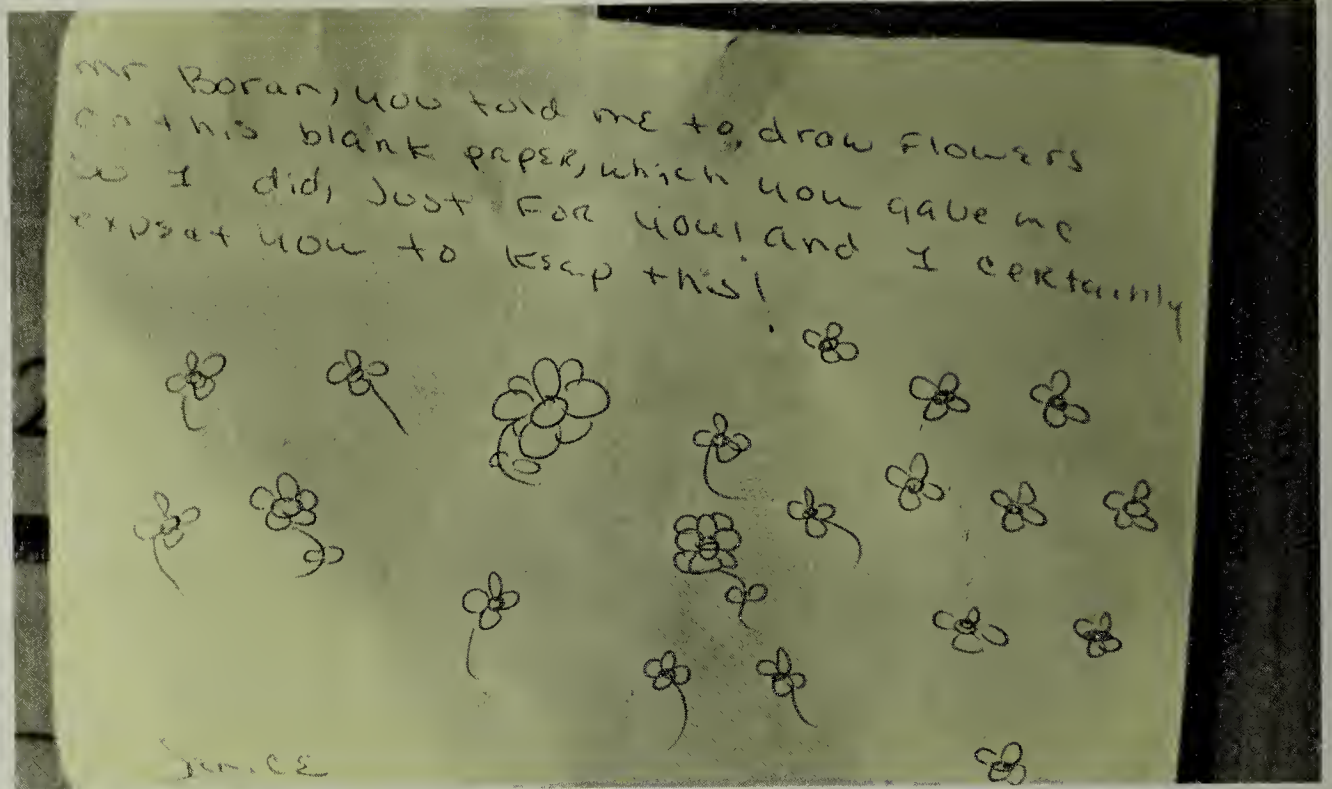 mr Boran, you told me to, draw Flowers
on this blank paper, which you gave me
so I did, Just For you! and I certainly
expsat you to kseap this!
Janice